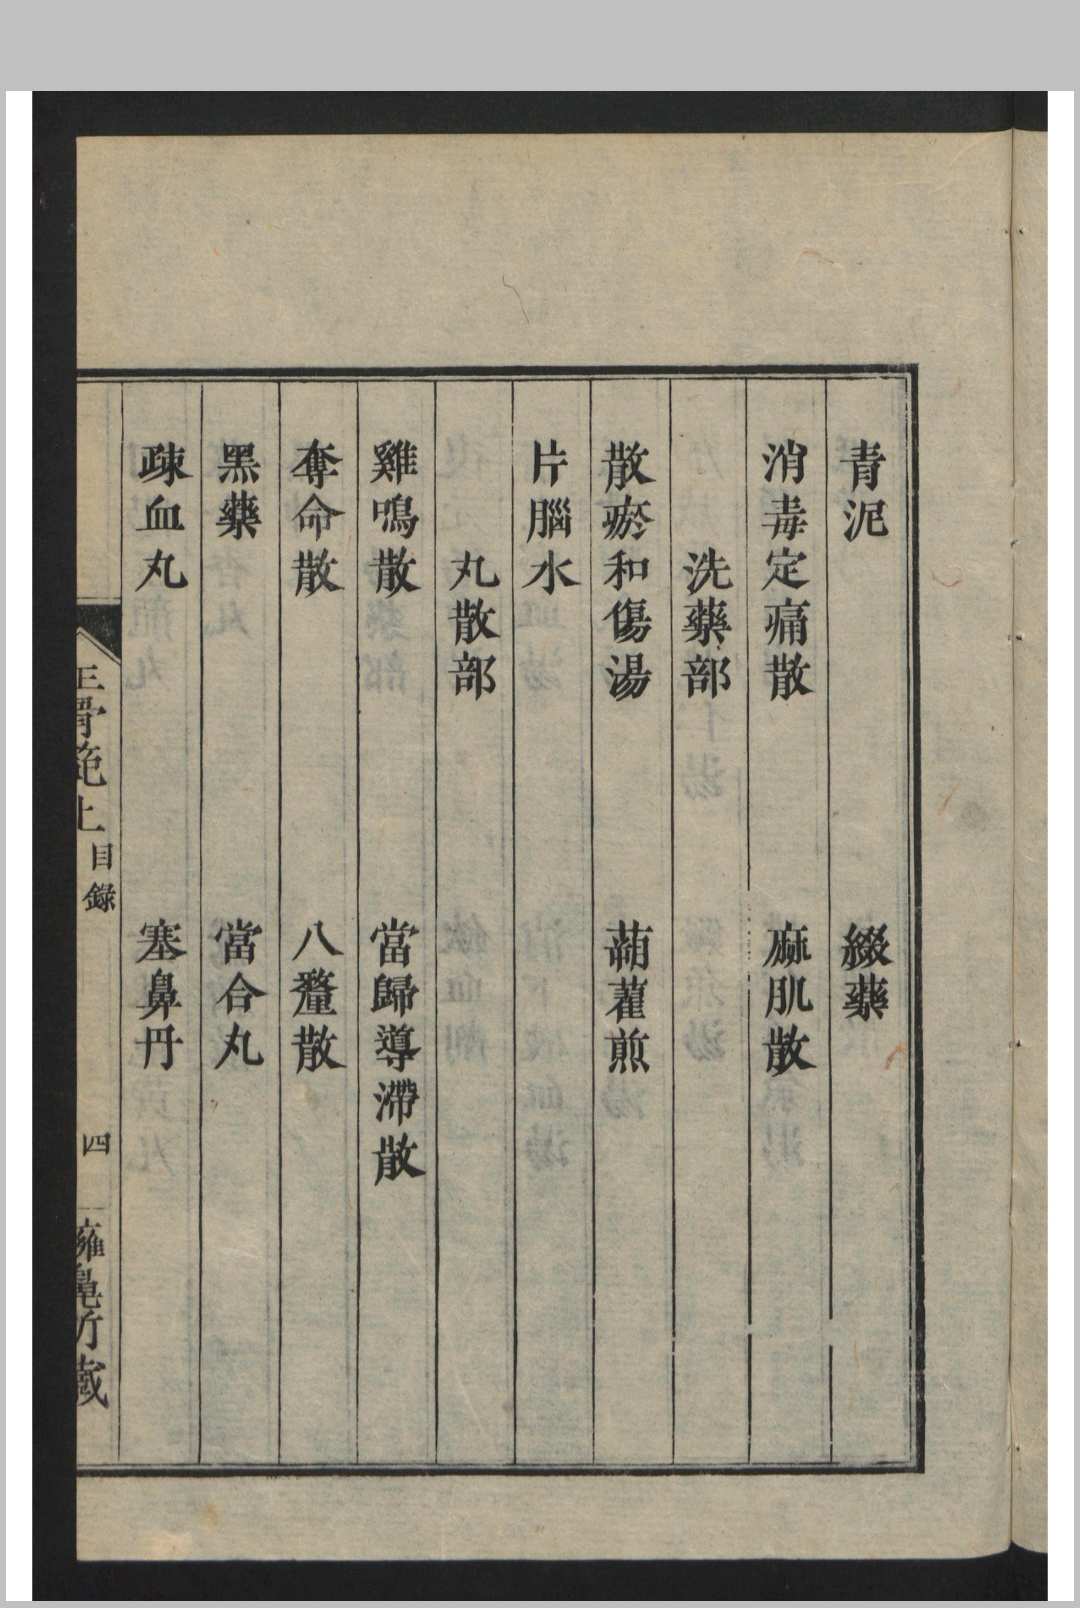 青泥 綴藥
消毒定痛散 麻肌散
洗藥部
散瘀和傷湯 蒴藋煎
片腦水
丸散部
雞鳴散 當歸導滯散
奪命散 八釐散
黑藥 當合丸
疎血丸 塞鼻丹
正骨範上 目錄 四 擁鼻所藏